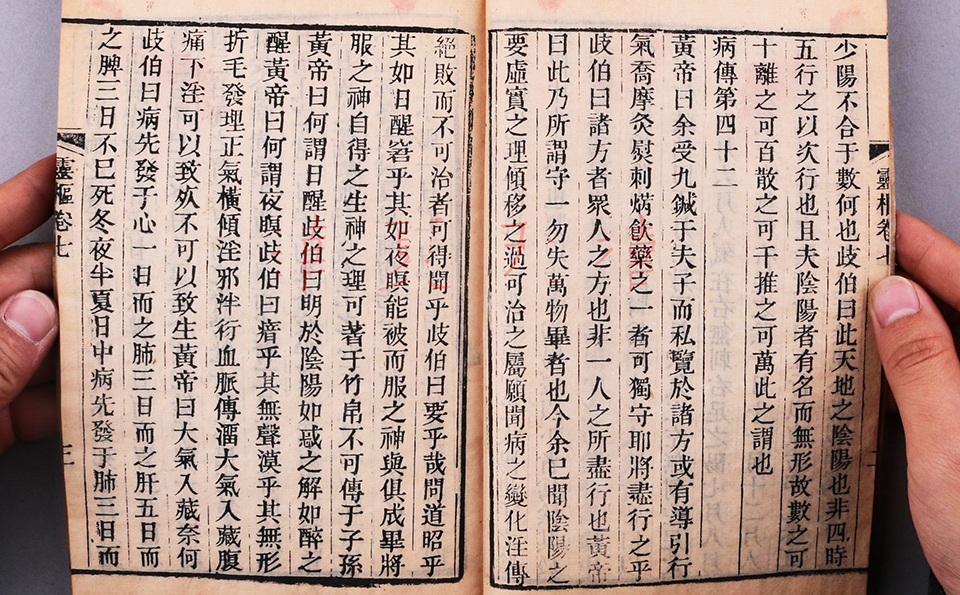 少陽不合于數何也歧伯曰此天地之陰陽也非四時
五行之以次行也且夫陰陽者有名而無形故數之可
十離之可百散之可千推之可萬此之謂也
病傳第四十二
黃帝曰余受九鍼于夫子而私覽於諸方或有導引行
氣喬摩灸熨刺焫飲藥之一者可獨守耶將盡行之乎
歧伯曰諸方者眾人之方也非一人之所盡行也黃帝
曰此乃所謂守一勿失萬物畢者也今余已聞陰陽之
要虛實之理傾移之過可治之屬願聞病之變化淫傳
絕敗而不可治者可得聞乎歧伯曰要乎哉問道昭乎
其如日醒窘乎其如夜瞑能被而服之神與俱成畢將
服之神自得之生神之理可著于竹帛不可傳于子孫
黃帝曰何謂日醒歧伯曰明於陰陽如惑之解如醉之
醒黃帝曰何謂夜瞑歧伯曰瘖乎其無聲漠乎其無形
折毛發理正氣橫傾淫邪泮衍血脈傳溜大氣入藏腹
痛下淫可以致死不可以致生黃帝曰大氣入藏奈何
歧伯曰病先發于心一日而之肺三日而之肝五日而
之脾三日不已死冬夜半夏日中病先發于肺三日而
靈樞卷七
二
靈樞卷七
三